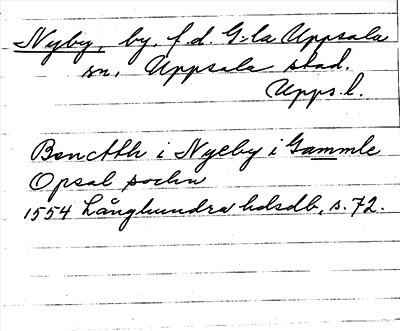 Nyby, by, f.d. G:la Uppsala
sn, Uppsala stad.
Upps.l.
Bencthh i Nyeby i Gammle
Opsal sochn
1554 Långhundra hdsdb, s. 72.